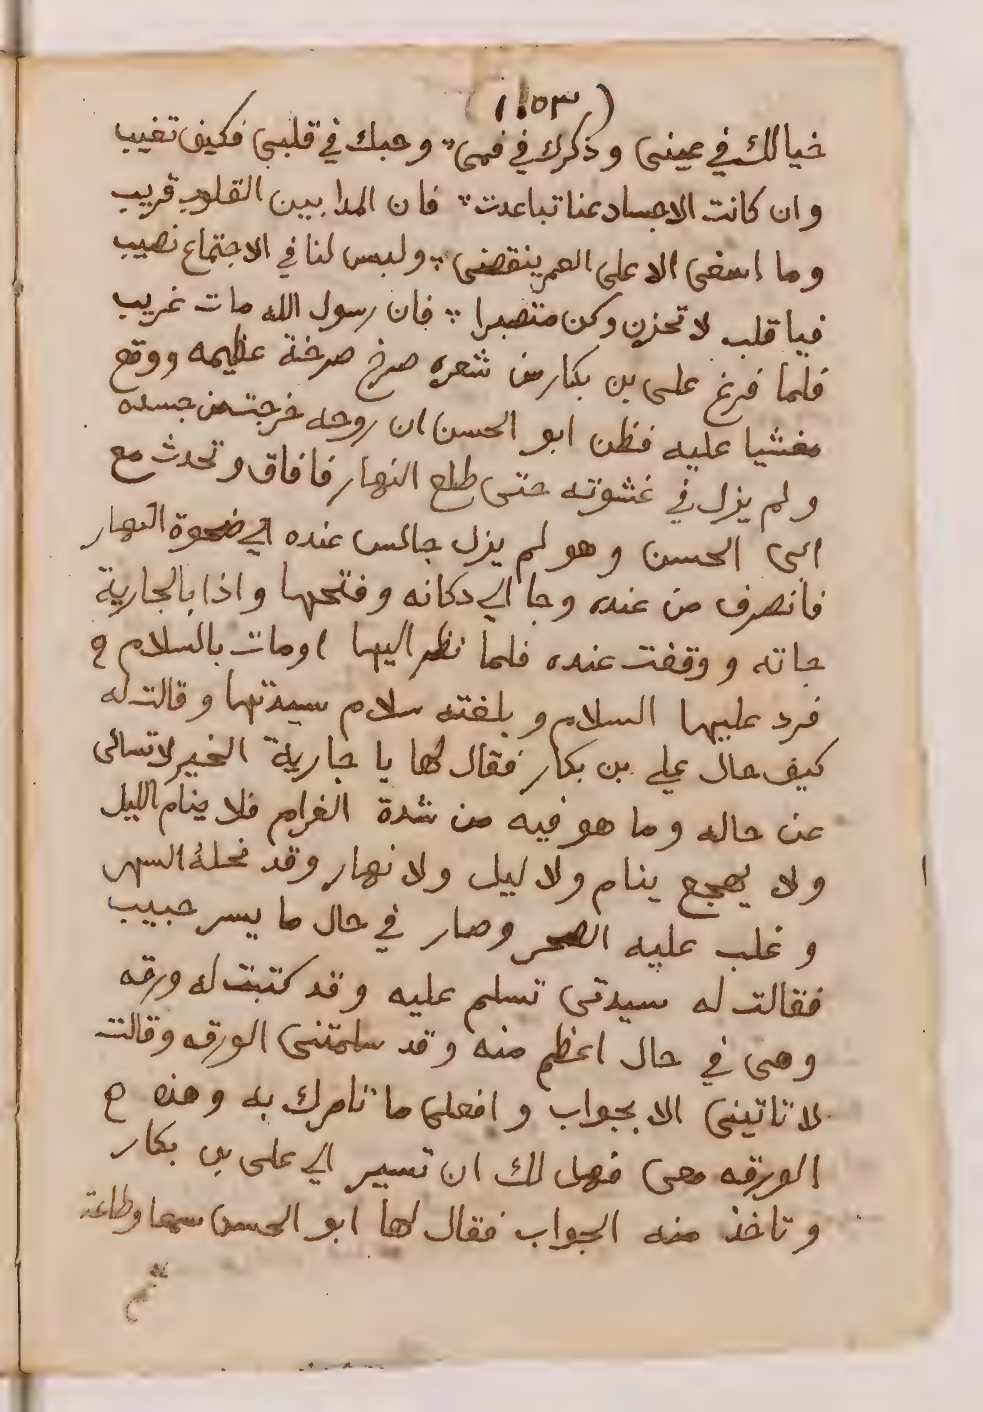 (١٥٣)
خيالك في عينى وذكرك في فمى ؞ وحبك في قلبى فكيف تغيب
وان كانت الاجساد عنا تباعدت ؞ فان المدا بين القلوب قريب
وما اسفى الا على العمر ينقضى ؞ وليس لنا في الاجتماع نصيب
فيا قلب لا تحزن وكن متصبرا ؞ فان رسول الله مات غريب
فلما فرغ على بن بكار من شعره صرخ صرخة عظيمه ووقع
مغشيا عليه فظن ابو الحسن ان روحه خرجت من جسده
ولم يزل في غشوته حتى طلع النهار فافاق وتحدث مع
ابى الحسن وهو لم يزل جالس عنده الي ضحوة النهار
فانصرف من عنده وجا الي دكانه وفتحها واذا بالجارية
جاته ووقفت عنده فلما نظر اليها اومات بالسلام
فرد عليها السلام وبلغته سلام سيدتها وقالت له
كيف حال علي بن بكار فقال لها يا جارية الخير لا تسالى
عن حاله وما هو فيه من شدة الغرام فلا ينام الليل
ولا يهجع ينام ولا ليل ولا نهار وقد نحله السهر
وغلب عليه وصار في حال ما يسر حبيب
فقالت له سيدتى تسلم عليه وقد كتبت له ورقه
وهى في حال اعظم منه وقد سلمتنى الورقه وقالت
لا تاتينى الا بجواب وافعلى ما نامرك به وهذه
الورقه معى فهل لك ان تسير الي على بن بكار
وتاخذ منه الجواب فقال لها ابو الحسن سمعا وطاعة